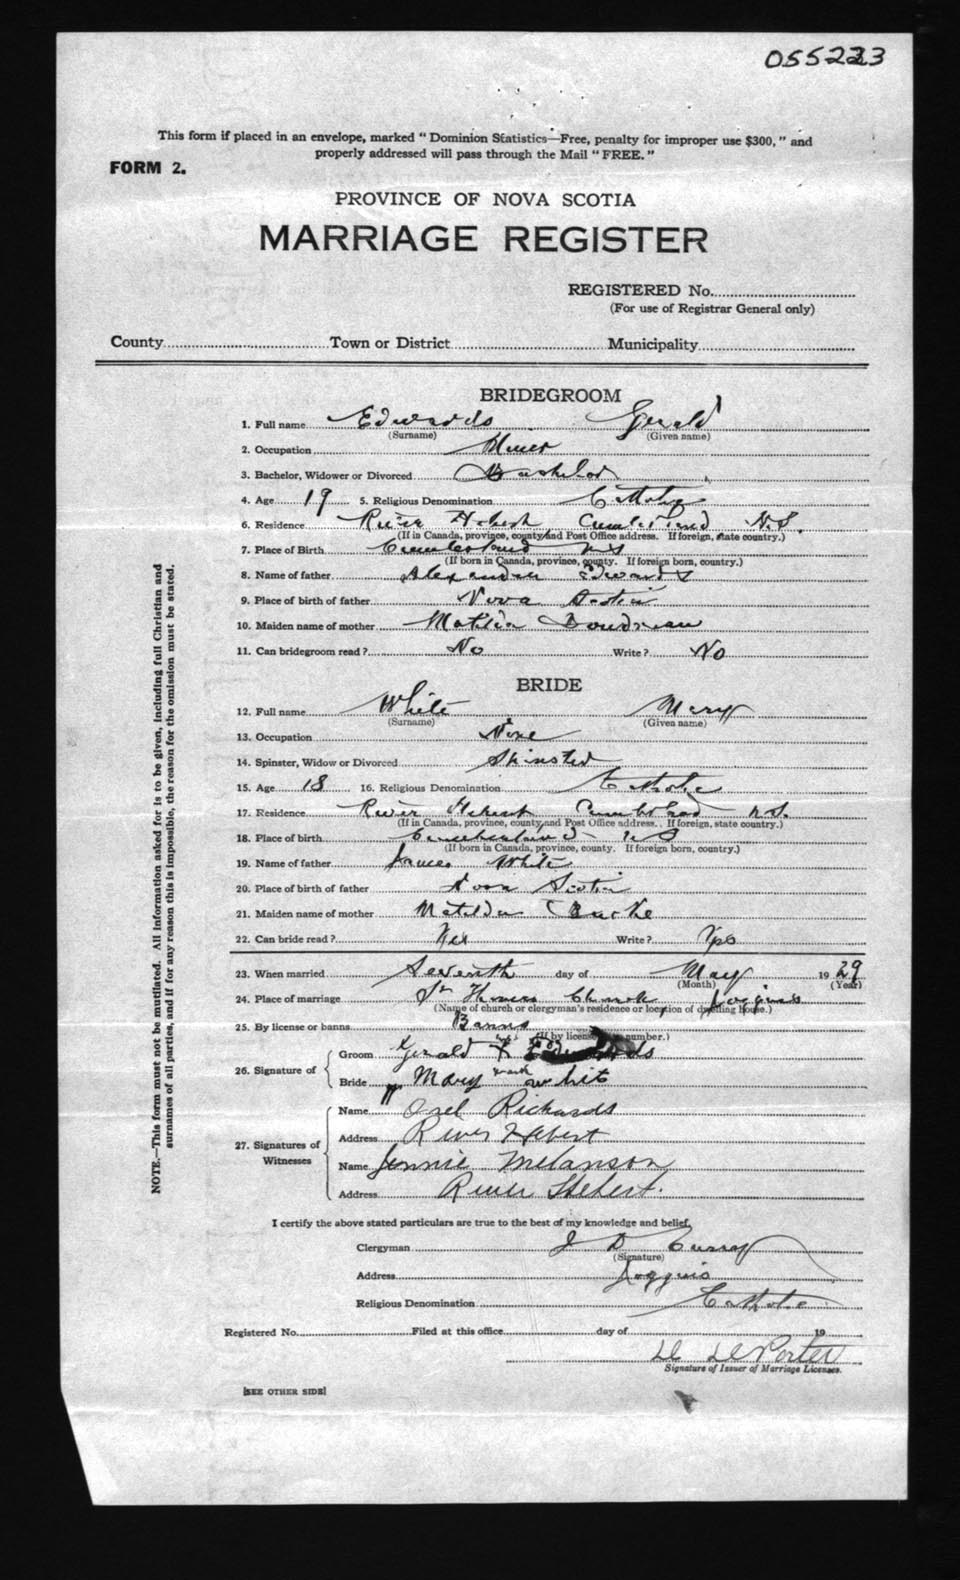 055223
This form if placed in an envelope, marked "Dominion Statistics—Free, penalty for improper use $300," and
properly addressed will pass through the Mail "FREE."
FORM 2.
PROVINCE OF NOVA SCOTIA
MARRIAGE REGISTER
REGISTERED No.
(For use of Registrar General only)
County Town or District Municipality
BRIDEGROOM
1. Full name Edwards Gerald
(Surname) (Given name)
2. Occupation Miner
3. Bachelor, Widower or Divorced Bachelor
4. Age 19 5. Religious Denomination Catholic
6. Residence River Hebert Cumberland N.S.
(If in Canada, province, county and Post Office address. If foreign, state country.)
7. Place of Birth Cumberland NS
(If born in Canada, province, county. If foreign born, country.)
8. Name of father Alexander Edwards
9. Place of birth of father Nova Scotia
10. Maiden name of mother Matilda Boudreau
11. Can bridegroom read? No Write? No
BRIDE
12. Full name White Mary
(Surname) (Given name)
13. Occupation None
14. Spinster, Widow or Divorced Spinster
15. Age 18 16. Religious Denomination Catholic
17. Residence River Hebert Cumberland N.S.
(If in Canada, province, county, and Post Office address. If foreign, state country.)
18. Place of birth Cumberland NS
(If born in Canada, province, county. If foreign born, country.)
19. Name of father James White
20. Place of birth of father Nova Scotia
21. Maiden name of mother Matilda Burke
22. Can bride read? Yes Write? Yes
23. When married Seventh day of May 1929
(Month) (Year)
24. Place of marriage St Thomas Church, Joggins
(Name of church or clergyman's residence or location of dwelling house.)
25. By license or banns Banns
(If by license, number.)
26. Signature of
Groom Gerald his X Edwards
Bride Mary mark Whit
27. Signatures of Witnesses
Name Orel Richards
Address River Hebert
Name Jennie Melanson
Address River Hebert.
I certify the above stated particulars are true to the best of my knowledge and belief.
Clergyman J D Curray
(Signature)
Address Joggins
Religious Denomination Catholic
Registered No. Filed at this office day of 19
Porter
Signature of Issuer of Marriage Licenses.
[SEE OTHER SIDE]
NOTE.—This form must not be mutilated. All information asked for is to be given, including full Christian and
surnames of all parties, and if for any reason this is impossible, the reason for the omission must be stated.